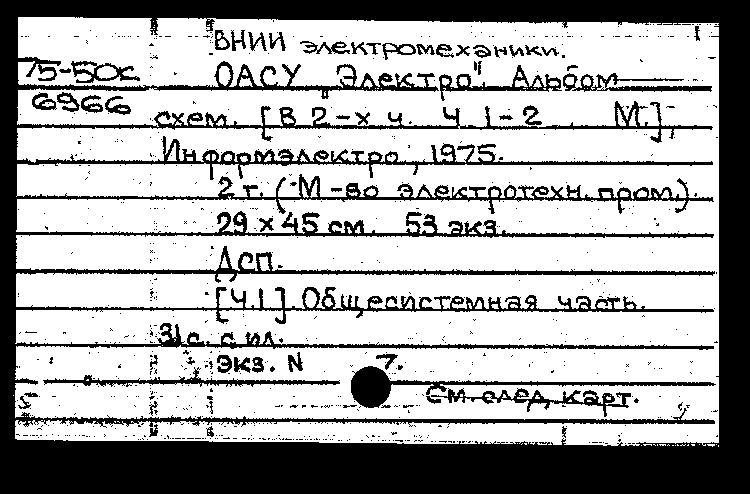 ВНИИ электромеханики.
75-50с ОАСУ "Электро". Альбом
6966 схем. [В 2-х ч. Ч 1-2 М.],
Информэлектро, 1975.
2 т. (М-во электротехн. пром.).
29 x 45 см. 53 экз.
Дсп.
[Ч.1]. Общесистемная часть.
31с. с ил.
Экз. N 7.
См. след. карт.